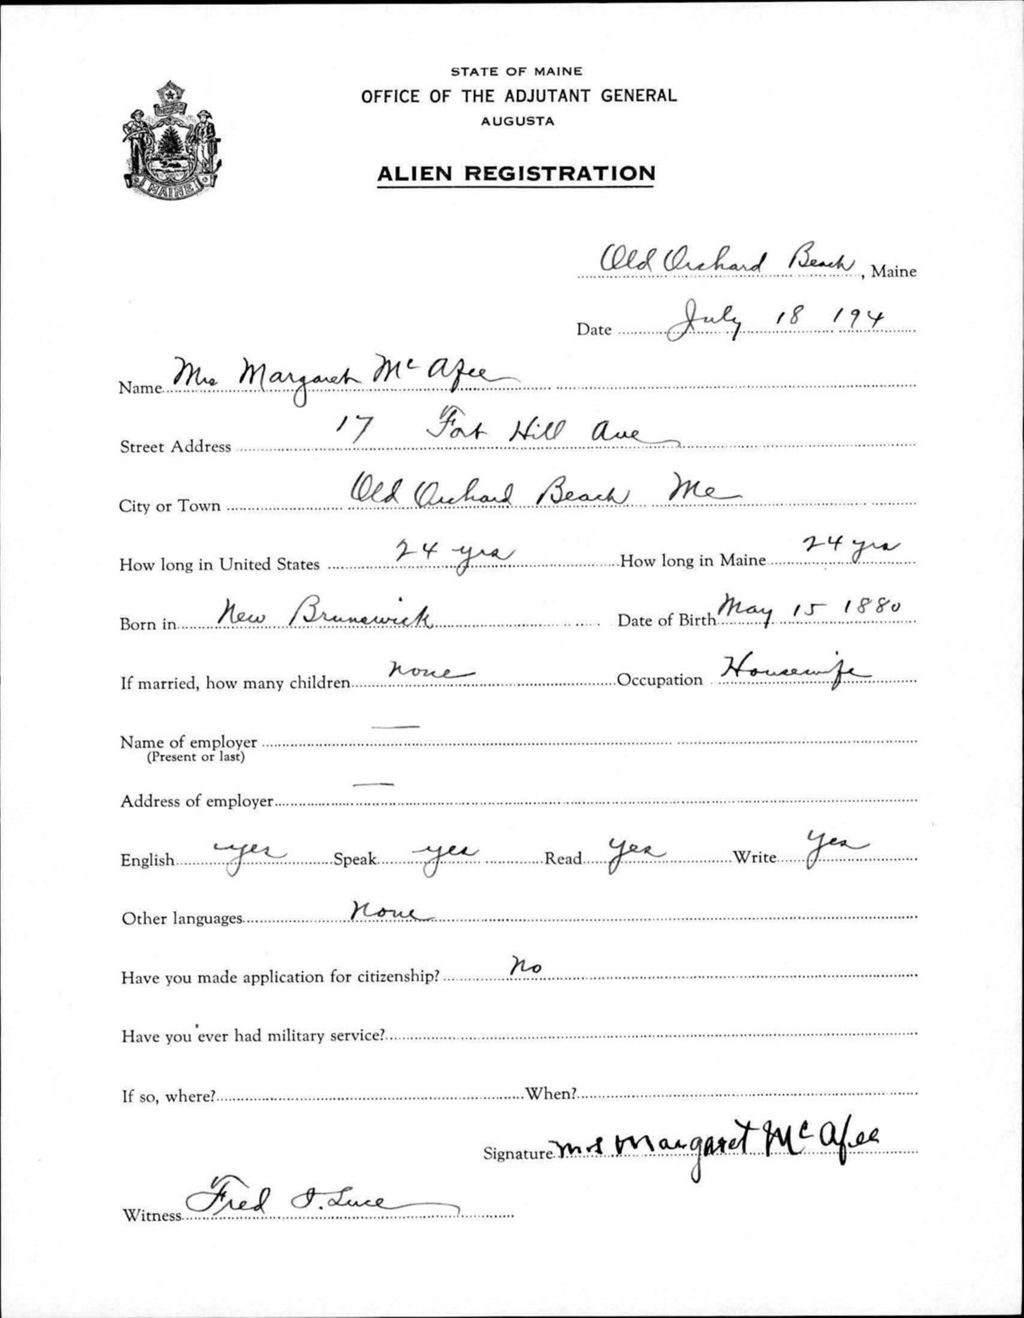 STATE OF MAINE
OFFICE OF THE ADJUTANT GENERAL
AUGUSTA
ALIEN REGISTRATION
MAINE
Old Orchard Beach, Maine
Date July 18 194
Name Mrs Margaret McAfee
Street Address 17 Fort Hill Ave
City or Town Old Orchard Beach Me
How long in United States 24 yrs How long in Maine 24 yrs
Born in New Brunswick Date of Birth May 15 1880
If married, how many children none Occupation Housewife
Name of employer —
(Present or last)
Address of employer —
English yes Speak yes Read yes Write yes
Other languages None
Have you made application for citizenship? No
Have you ever had military service?
If so, where? When?
Signature Mrs Margaret McAfee
Witness Fred I. Luce